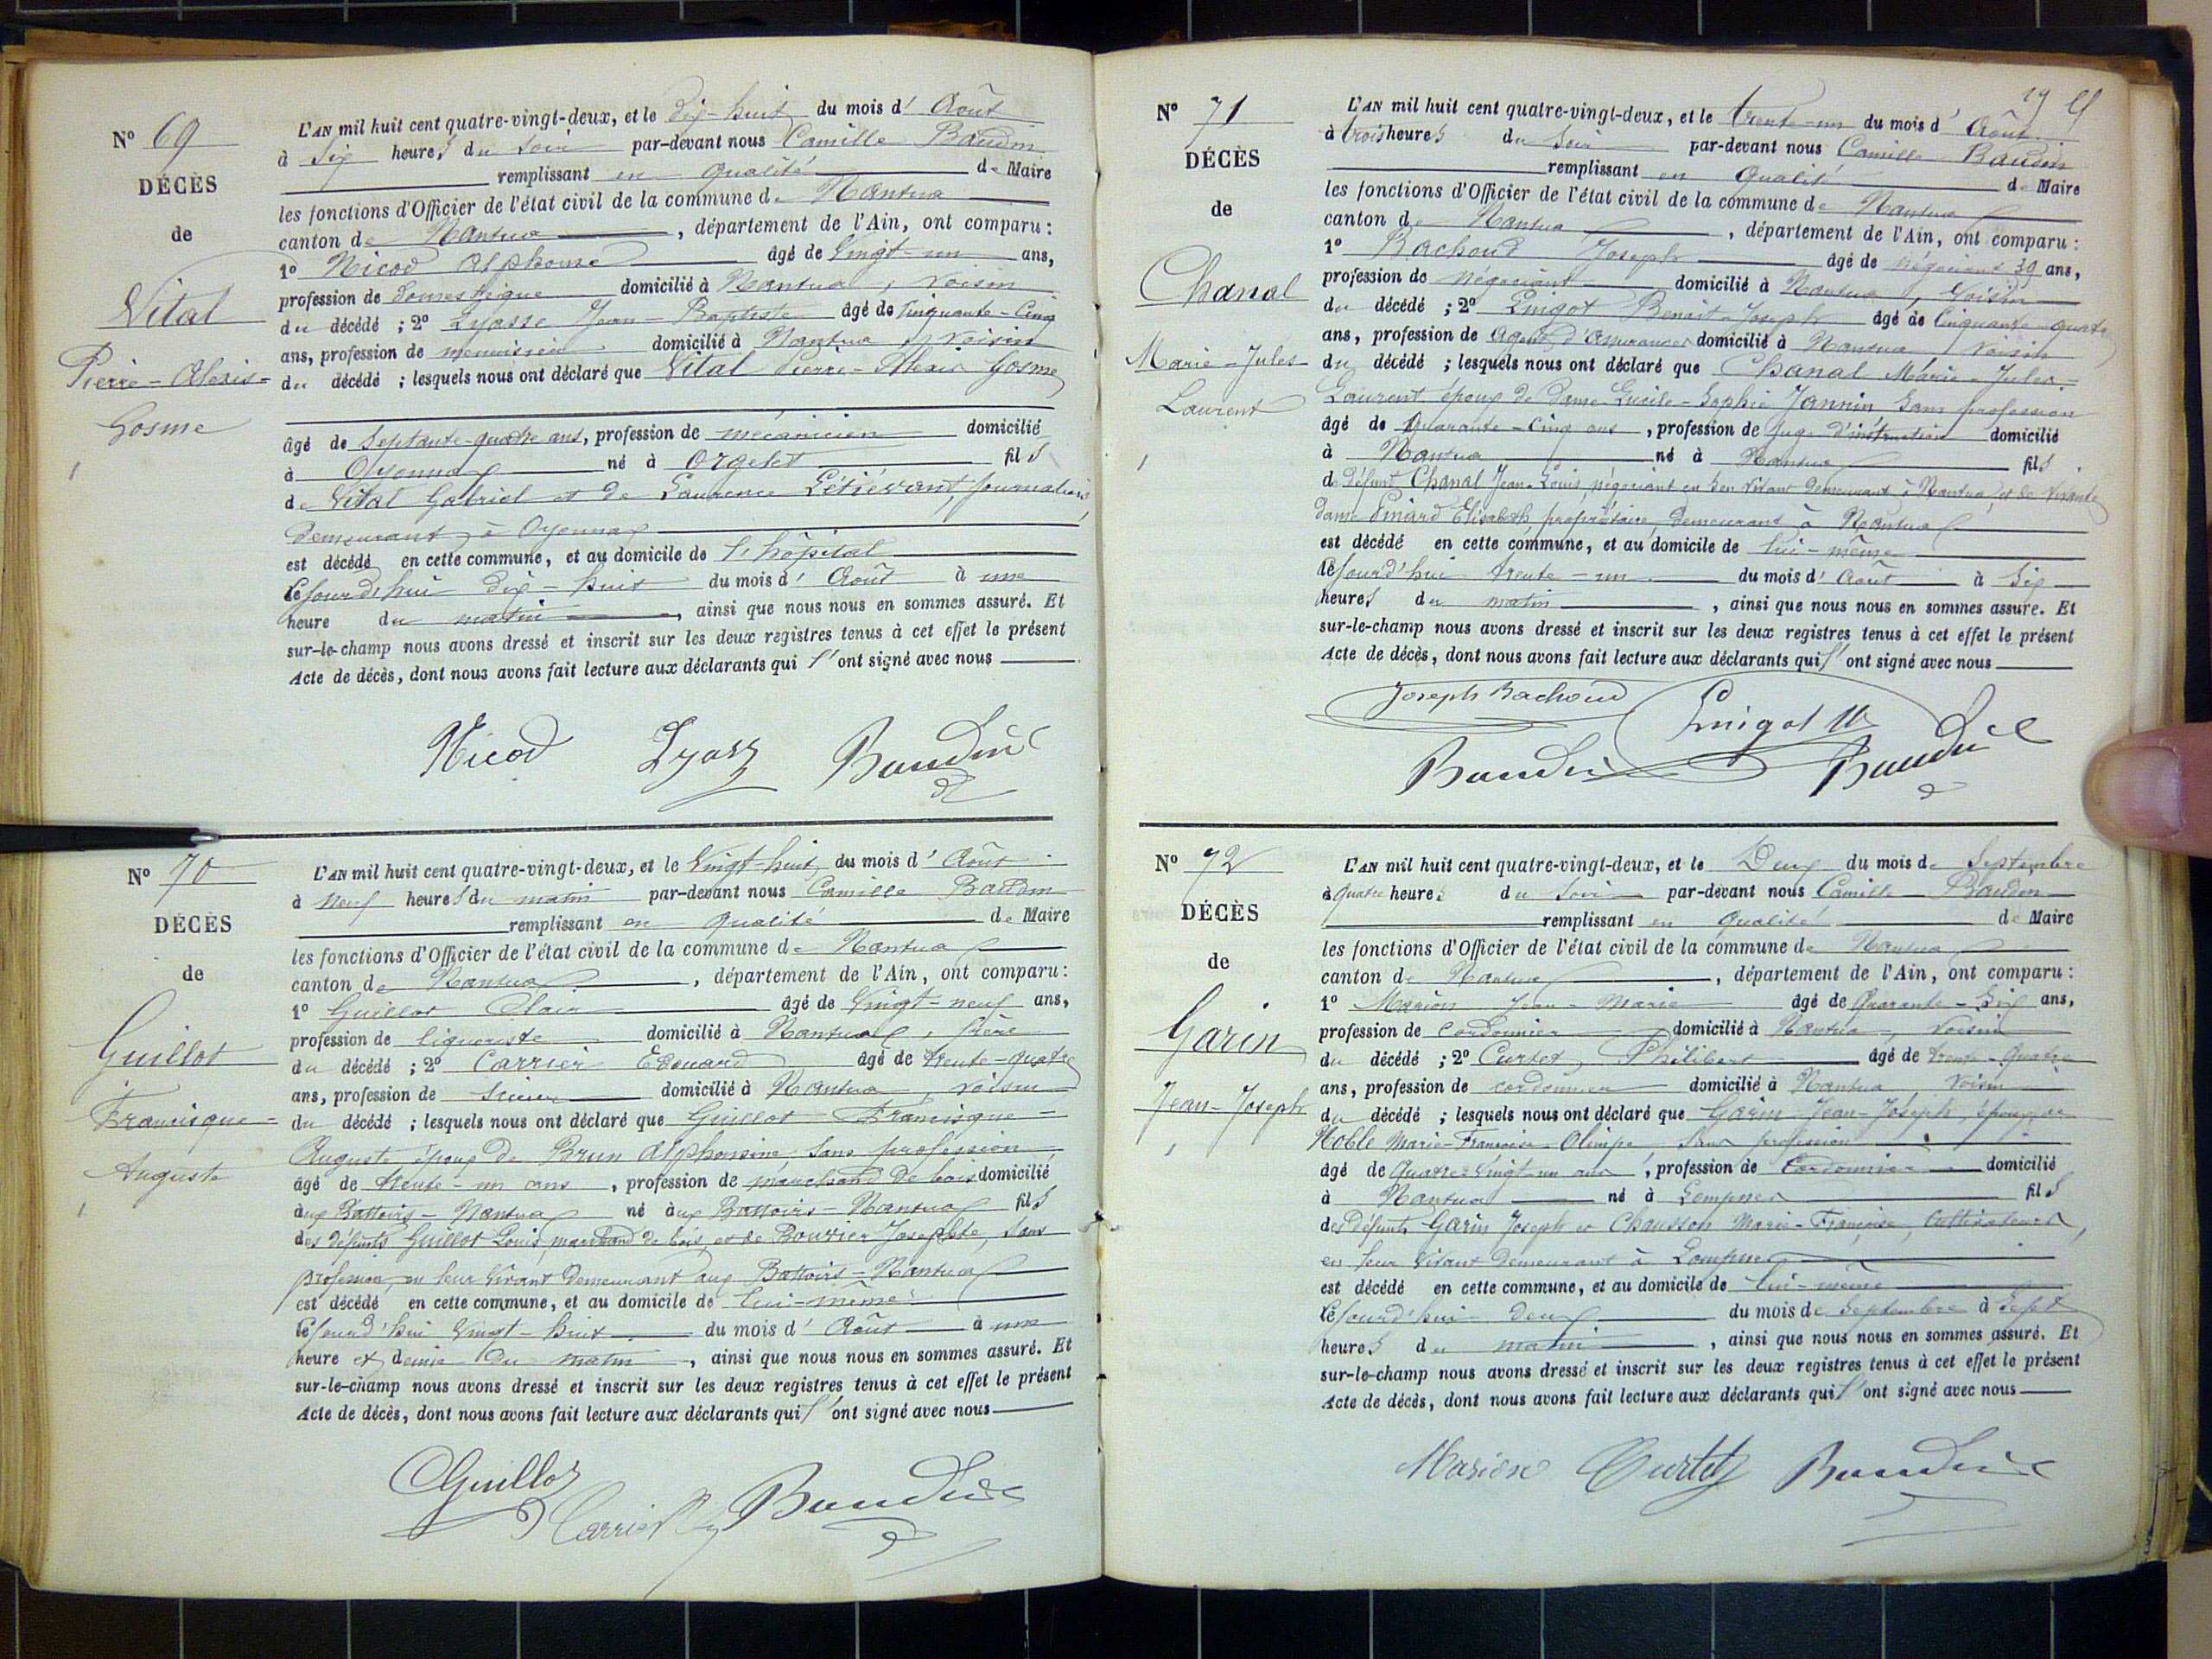 Nº 69
DÉCÈS
de
Vital
Pierre-Alexis-
Gosme
L'AN mil huit cent quatre-vingt-deux, et le dix-huit du mois d' Août
à six heures du soir par-devant nous Camille Baudin
remplissant en qualité de Maire
les fonctions d'Officier de l'état civil de la commune de Nantua
canton de Nantua, département de l'Ain, ont comparu:
1º Nicod Alphonse âgé de vingt-un ans,
profession de domestique domicilié à Nantua, voisin
du décédé ; 2º Lyasse Jean-Baptiste âgé de cinquante-cinq
ans, profession de menuisier domicilié à Nantua, voisin
du décédé ; lesquels nous ont déclaré que Vital Pierre-Alexis Gosme
âgé de septante-quatre ans, profession de mécanicien domicilié
à Oyonnax né à Orgelet fils
de Vital Gabriel et de Laurence Létiévant journaliers
demeurant à Oyonnax
est décédé en cette commune, et au domicile de l'hôpital
cejourd'hui dix-huit du mois d' Août à une
heure du matin, ainsi que nous nous en sommes assuré. Et
sur-le-champ nous avons dressé et inscrit sur les deux registres tenus à cet effet le présent
Acte de décès, dont nous avons fait lecture aux déclarants qui l'ont signé avec nous
Nicod Baudin
Nº 70
DÉCÈS
de
Guillot
Francisque-
Auguste
L'AN mil huit cent quatre-vingt-deux, et le vingt-huit du mois d' Août
à neuf heures du matin par-devant nous Camille Baudin
remplissant en qualité de Maire
les fonctions d'Officier de l'état civil de la commune de Nantua
canton de Nantua, département de l'Ain, ont comparu:
1º Guillot Clair âgé de vingt-neuf ans,
profession de liquoriste domicilié à Nantua, frère
du décédé ; 2º Carrier Edouard âgé de trente-quatre
ans, profession de scieur domicilié à Nantua, voisin
du décédé ; lesquels nous ont déclaré que Guillot Francisque-
Auguste époux de Brun Alphonsine, sans profession
âgé de trente-un ans, profession de marchand de bois domicilié
aux Battoirs-Nantua né aux Battoirs-Nantua fils
des défunts Guillot Louis, marchand de bois, et de Bouvier Josephte, sans
profession, en leur vivant demeurant aux Battoirs-Nantua
est décédé en cette commune, et au domicile de lui-même
cejourd'hui vingt-huit du mois d' Août à une
heure et demie du matin, ainsi que nous nous en sommes assuré. Et
sur-le-champ nous avons dressé et inscrit sur les deux registres tenus à cet effet le présent
Acte de décès, dont nous avons fait lecture aux déclarants qui l'ont signé avec nous
CGuillot Carrier Baudin
19
Nº 71
DÉCÈS
de
Chanal
Marie-Jules-
Laurent
L'AN mil huit cent quatre-vingt-deux, et le trente-un du mois d' Août
à trois heures du soir par-devant nous Camille Baudin
remplissant en qualité de Maire
les fonctions d'Officier de l'état civil de la commune de Nantua
canton de Nantua, département de l'Ain, ont comparu:
1º Bachoud Joseph âgé de négociant 39 ans,
profession de négociant domicilié à Nantua, voisin
du décédé ; 2º Pingot Benoit-Joseph âgé de cinquante-quatre
ans, profession de agent d'assurances domicilié à Nantua, voisin
du décédé ; lesquels nous ont déclaré que Chanal Marie-Jules-
Laurent époux de Dame Lucile-Sophie Jannin, sans profession
âgé de quarante-cinq ans, profession de juge d'instruction domicilié
à Nantua né à Nantua fils
de défunt Chanal Jean-Louis, négociant en son vivant demeurant à Nantua, et de vivante
dame Pinard Elisabeth, propriétaire, demeurant à Nantua
est décédé en cette commune, et au domicile de lui-même
cejourd'hui trente-un du mois d' Août à six
heures du matin, ainsi que nous nous en sommes assuré. Et
sur-le-champ nous avons dressé et inscrit sur les deux registres tenus à cet effet le présent
Acte de décès, dont nous avons fait lecture aux déclarants qui l'ont signé avec nous
Joseph Bachoud
Baudin Baudin
Nº 72
DÉCÈS
de
Garin
Jean-Joseph
L'AN mil huit cent quatre-vingt-deux, et le deux du mois de Septembre
à quatre heures du soir par-devant nous Camille Baudin
remplissant en qualité de Maire
les fonctions d'Officier de l'état civil de la commune de Nantua
canton de Nantua, département de l'Ain, ont comparu:
1º Marion Jean-Marie âgé de quarante-six ans,
profession de cordonnier domicilié à Nantua, voisin
du décédé ; 2º Curtet Philibert âgé de trente-quatre
ans, profession de cordonnier domicilié à Nantua voisin
du décédé ; lesquels nous ont déclaré que Garin Jean-Joseph, époux de
Noble Marie-Françoise-Olimpe, sans profession
âgé de quatre-vingt-un ans, profession de cordonnier domicilié
à Nantua né à Lompnes fils
des défunts Garin Joseph et Chausson Marie-Françoise, cultivateurs,
en leur vivant demeurant à Lompnes
est décédé en cette commune, et au domicile de lui-même
cejourd'hui deux du mois de Septembre à sept
heures du matin, ainsi que nous nous en sommes assuré. Et
sur-le-champ nous avons dressé et inscrit sur les deux registres tenus à cet effet le présent
Acte de décès, dont nous avons fait lecture aux déclarants qui l'ont signé avec nous
Marion Curtet Baudin